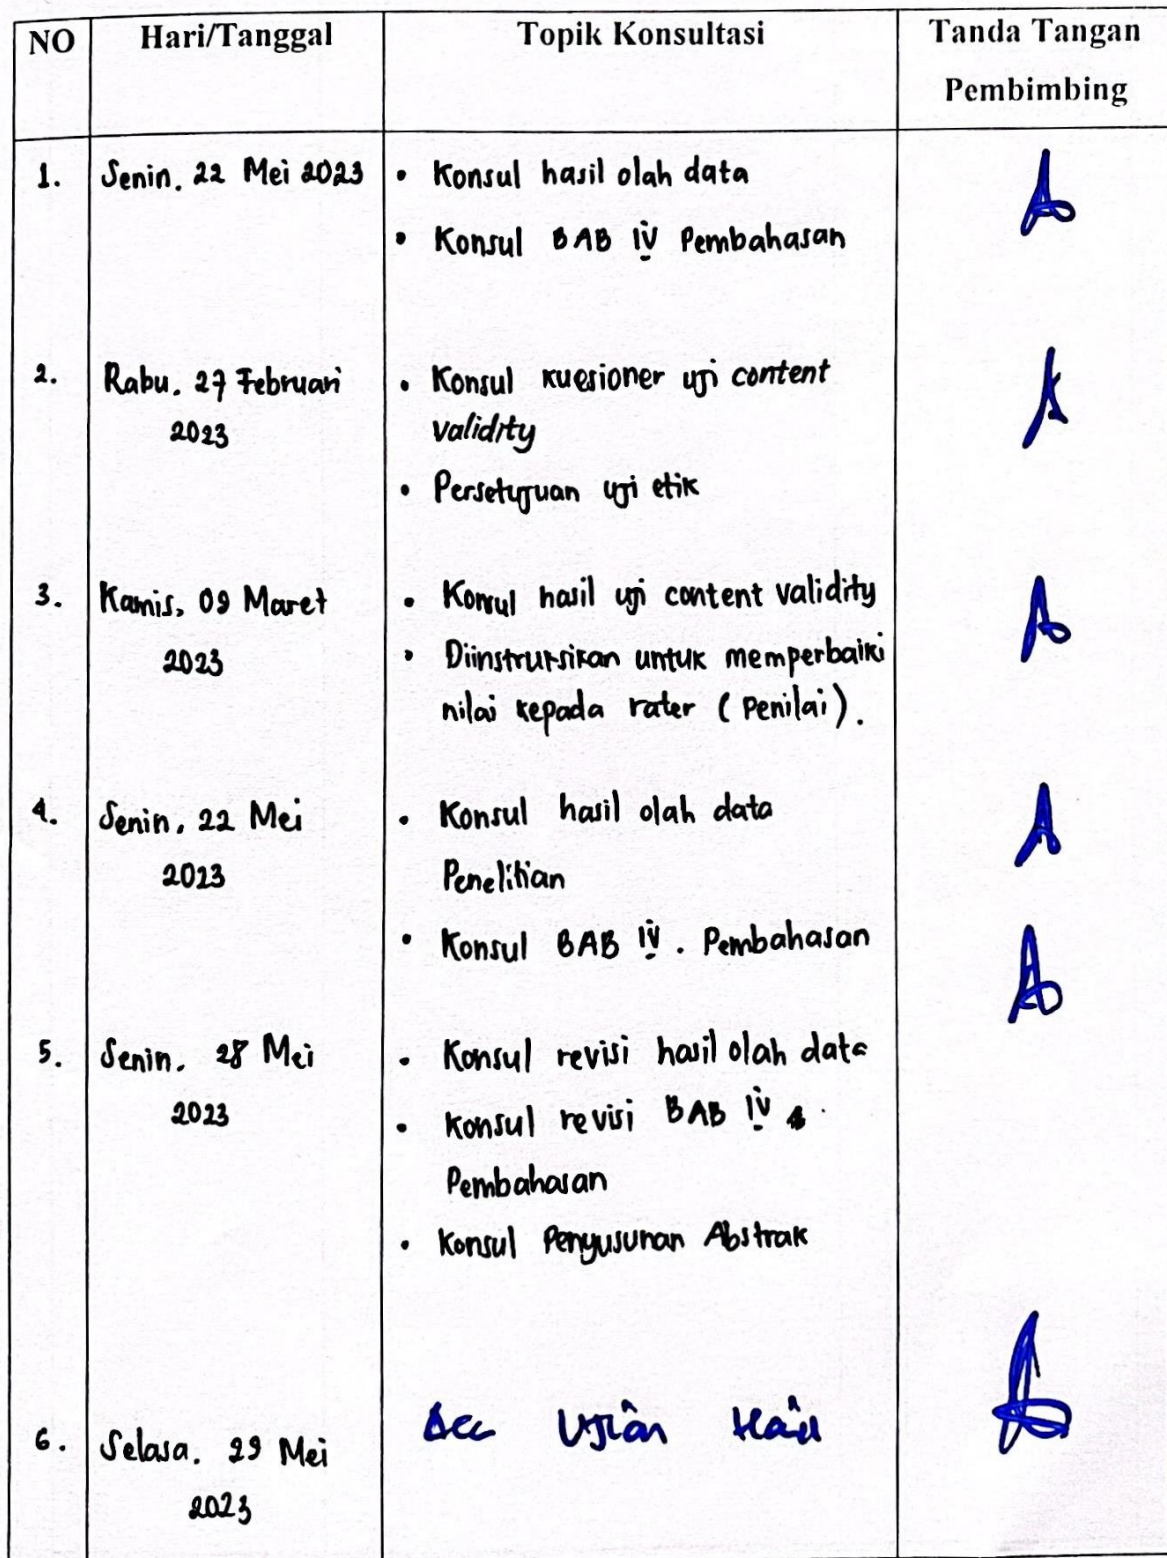 NO Hari/Tanggal Topik Konsultasi Tanda Tangan
Pembimbing
1. Senin, 22 Mei 2023 • Konsul hasil olah data
• Konsul BAB IV Pembahasan
2. Rabu, 27 Februari • Konsul kuesioner uji content
2023 validity
• Persetujuan uji etik
3. Kamis, 09 Maret • Konsul hasil uji content validity
2023 • Diinstruksikan untuk memperbaiki
nilai kepada rater (Penilai).
4. Senin, 22 Mei • Konsul hasil olah data
2023 Penelitian
• Konsul BAB IV. Pembahasan
5. Senin, 28 Mei • Konsul revisi hasil olah data
2023 • Konsul revisi BAB IV
Pembahasan
• Konsul Penyusunan Abstrak
6. Selasa, 29 Mei Acc Ujian Hasil
2023